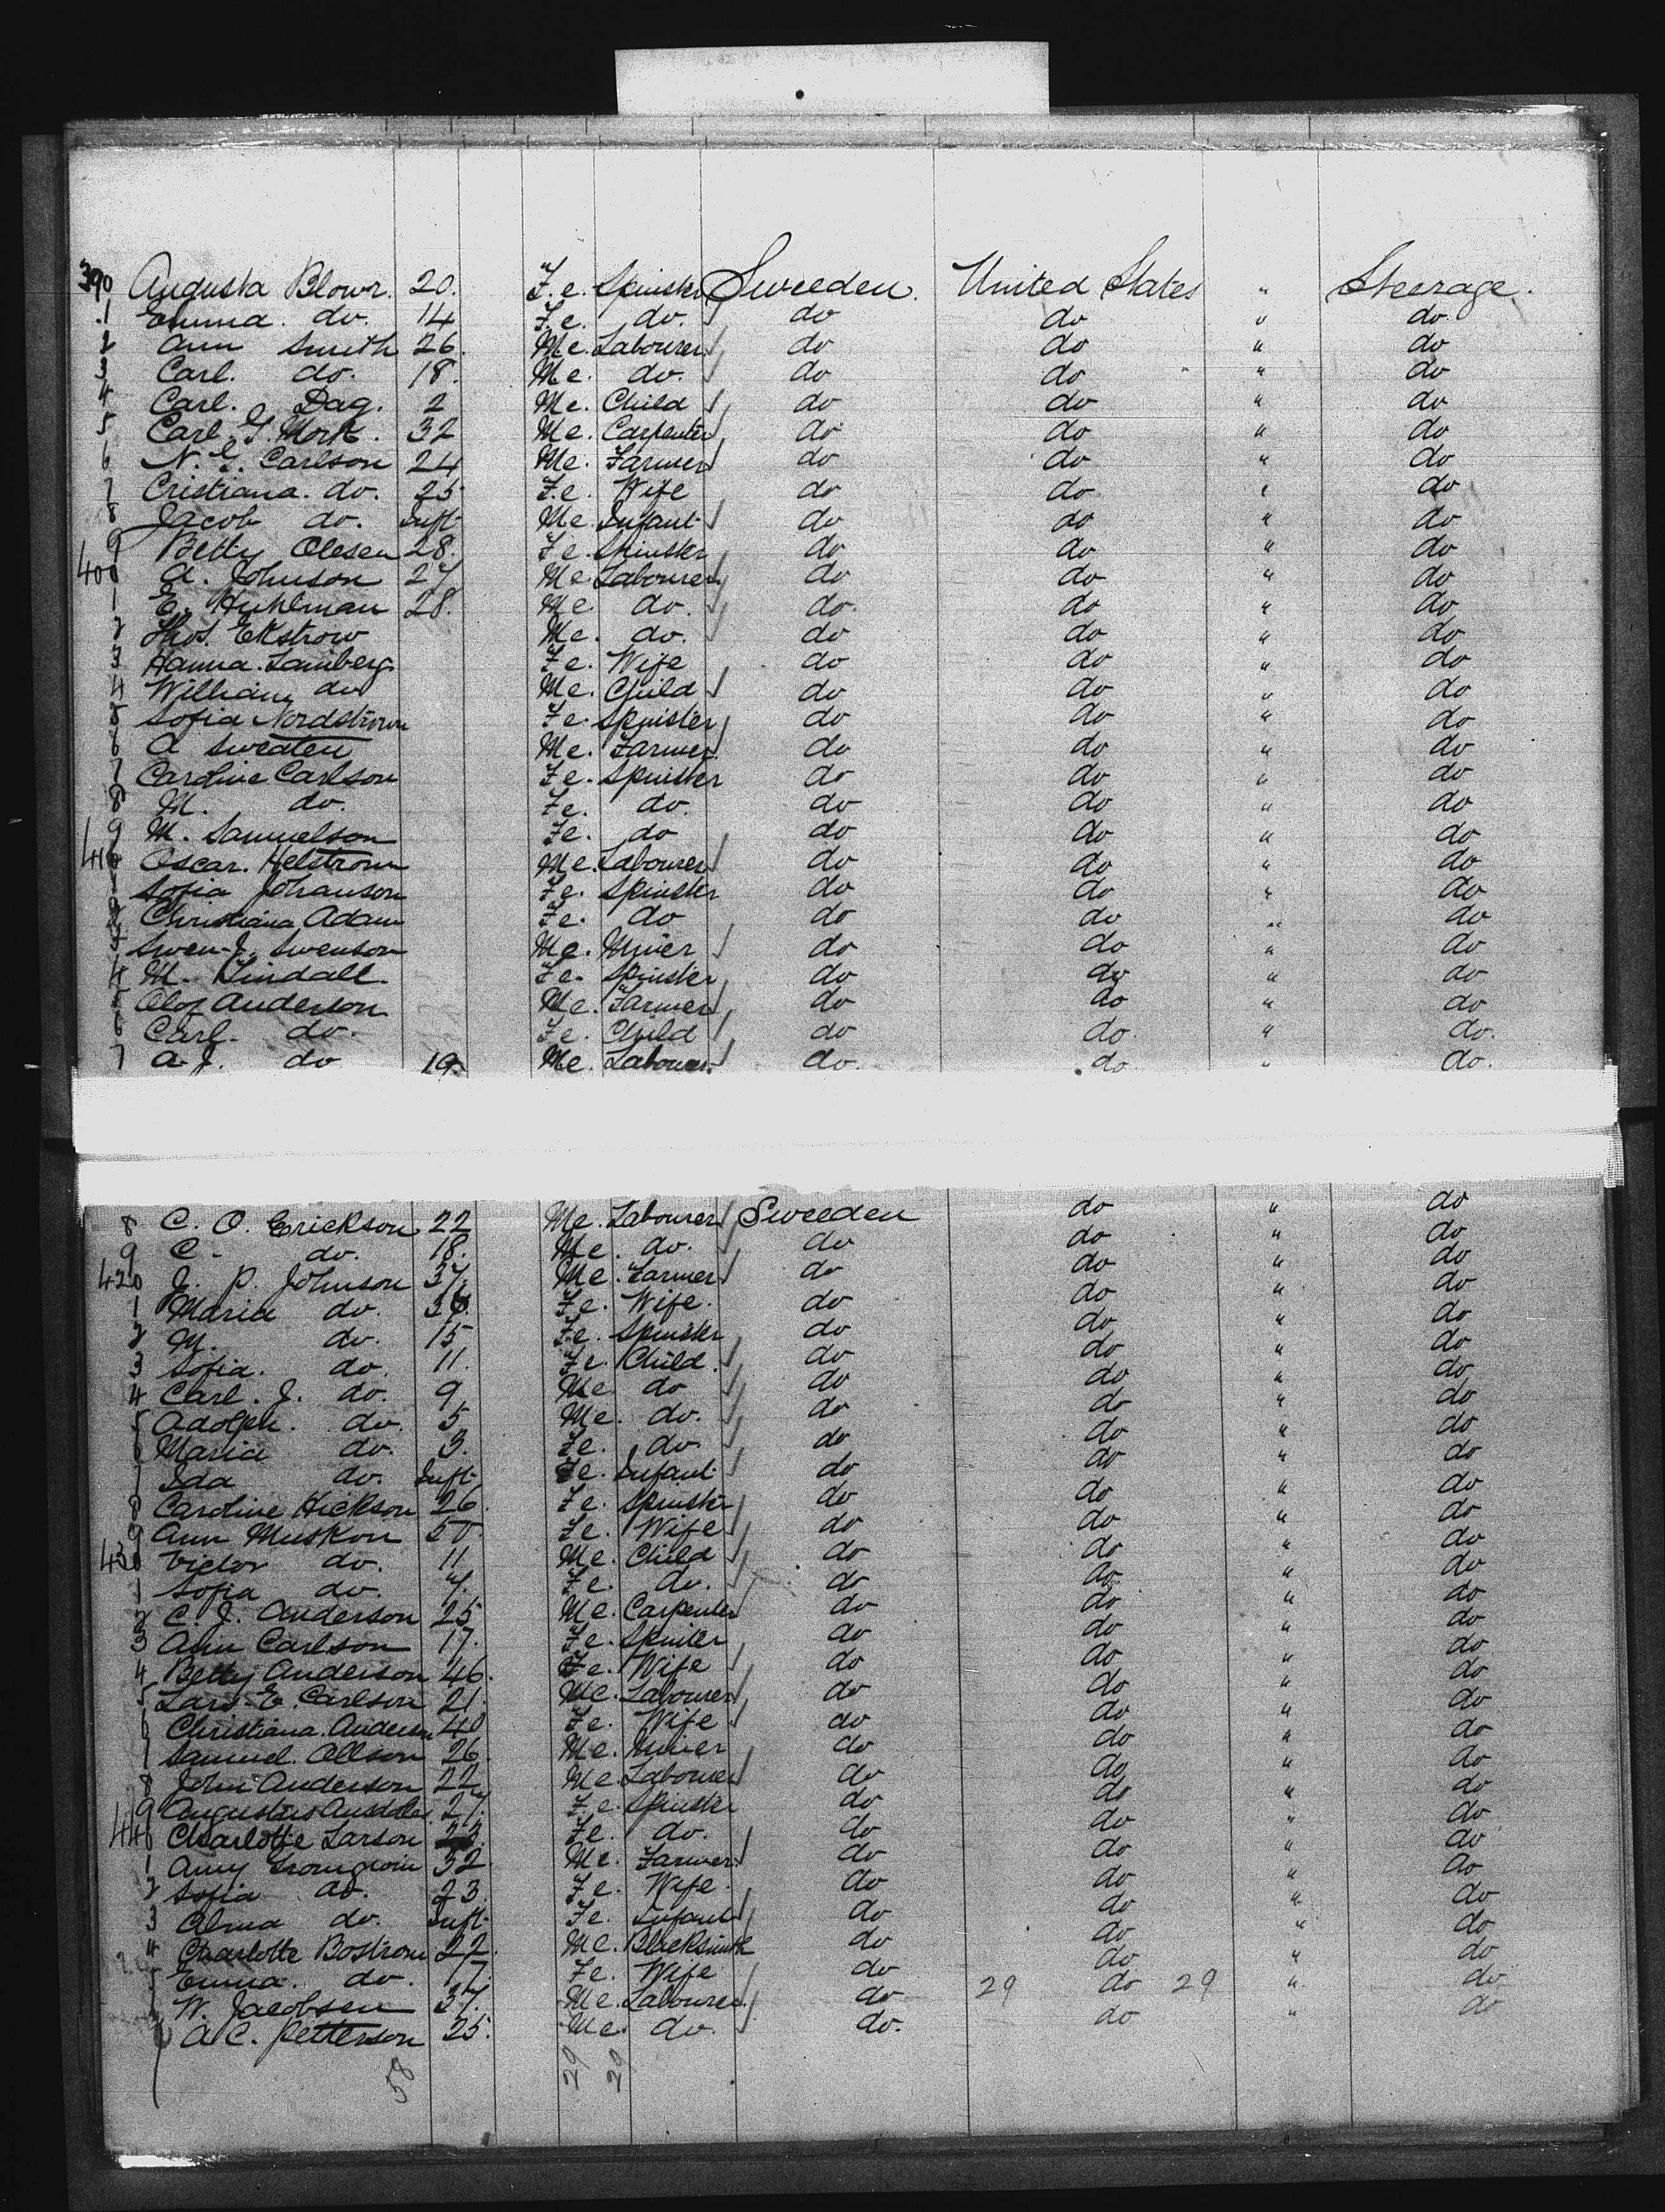 390 Augusta Blowr. 20. Fe. Spinster Sweeden. United States " Steerage.
1 Emma. do. 14 Fe. do. do do " do
2 Ann Smith 26. Me. Labourer do do " do
3 Carl. do. 18. Me. do. do do " do
4 Carl. Dag. 2 Me. Child do do " do
5 Carl G. Mork. 32 Me. Carpenter do do " do
6 N. E. Carlson 24 Me. Farmer do do " do
7 Cristiana. do. 25 Fe. Wife do do " do
8 Jacob do. Inft. Me. Infant do do " do
9 Betty Olesen 28. Fe. Spinster do do " do
400 A. Johnson 27 Me. Labourer do do " do
1 E. Huhlman 28. Me. do. do. do " do
2 Thos. Ekstrow Me. do. do do " do
3 Hanna. Lamberg. Fe. Wife do do " do
4 William do Me. Child do do " do
5 Sofia Nordstrom Fe. Spinster do do " do
6 A Sweaten Me. Farmer do do " do
7 Caroline Carlson Fe. Spinster do do " do
8 M. do. Fe. do. do do " do
9 M. Samuelson Fe. do do do " do
410 Oscar. Helstrom Me. Labourer do do " do
1 Sofia Johanson Fe. Spinster do do " do
2 Christiana Adam Fe. do do do " do
3 Swen J. Swenson Me. Miner do do " do
4 M. Lindall. Fe. Spinster do do " do
5 Olof Anderson Me. Farmer do do " do
6 Carl. do. Fe. Child do do. " do.
7 A. J. do 19. Me. Labourer. do. do " do.
8 C. O. Erickson 22 Me. Labourer Sweeden do " do
9 C. do. 18. Me. do. do do " do
420 J. P. Johnson 37. Me. Farmer do do " do
1 Maria do. Fe. Wife. do do " do
2 M. do. 15 Fe. Spinster do do " do
3 Sofia. do. 11. Fe. Child. do do " do
4 Carl. J. do. 9 Me. do do do " do
5 Adolph. do. 5 Me. do. do do " do
6 Maria do. 3. Fe. do. do do " do
7 Ida do. Inft. Fe. Infant do do " do
8 Caroline Hickson 26. Fe. Spinster do do " do
9 Ann Muskon 50. Fe. Wife do do " do
430 Victor do. 11 Me. Child do do " do
1 Sofia do. 7. Fe. do. do do " do
2 C. J. Anderson 25 Me. Carpenter do do " do
3 Ann Carlson 17. Fe. Spinster do do " do
4 Betty Anderson 46. Fe. Wife do do " do
5 Lars E. Carlson 21. Me. Labourer do do " do
6 Christiana. Anderson 40 Fe. Wife do do " do
7 Samuel. Ollson 26 Me. Miner do do " do
8 John Anderson 22 Me. Labourer do do " do
9 Augustus 27. Fe. Spinster do do " do
440 Charlotte Larson Fe. do. do do " do
1 Amy 32 Me. Farmer do do " do
2 Sofia do. 23. Fe. Wife. do do " do
3 Alma do. Inft. Fe. Infant do do " do
4 Charlotte Bostrom 22. Me. Blacksmith do do " do
5 Emma. do. 17. Fe. Wife do 29 do 29 " do
W. Jacobsen 37. Me. Labourer. do do " do
A. C. Petterson 25. Me. do. do.
58 29 29